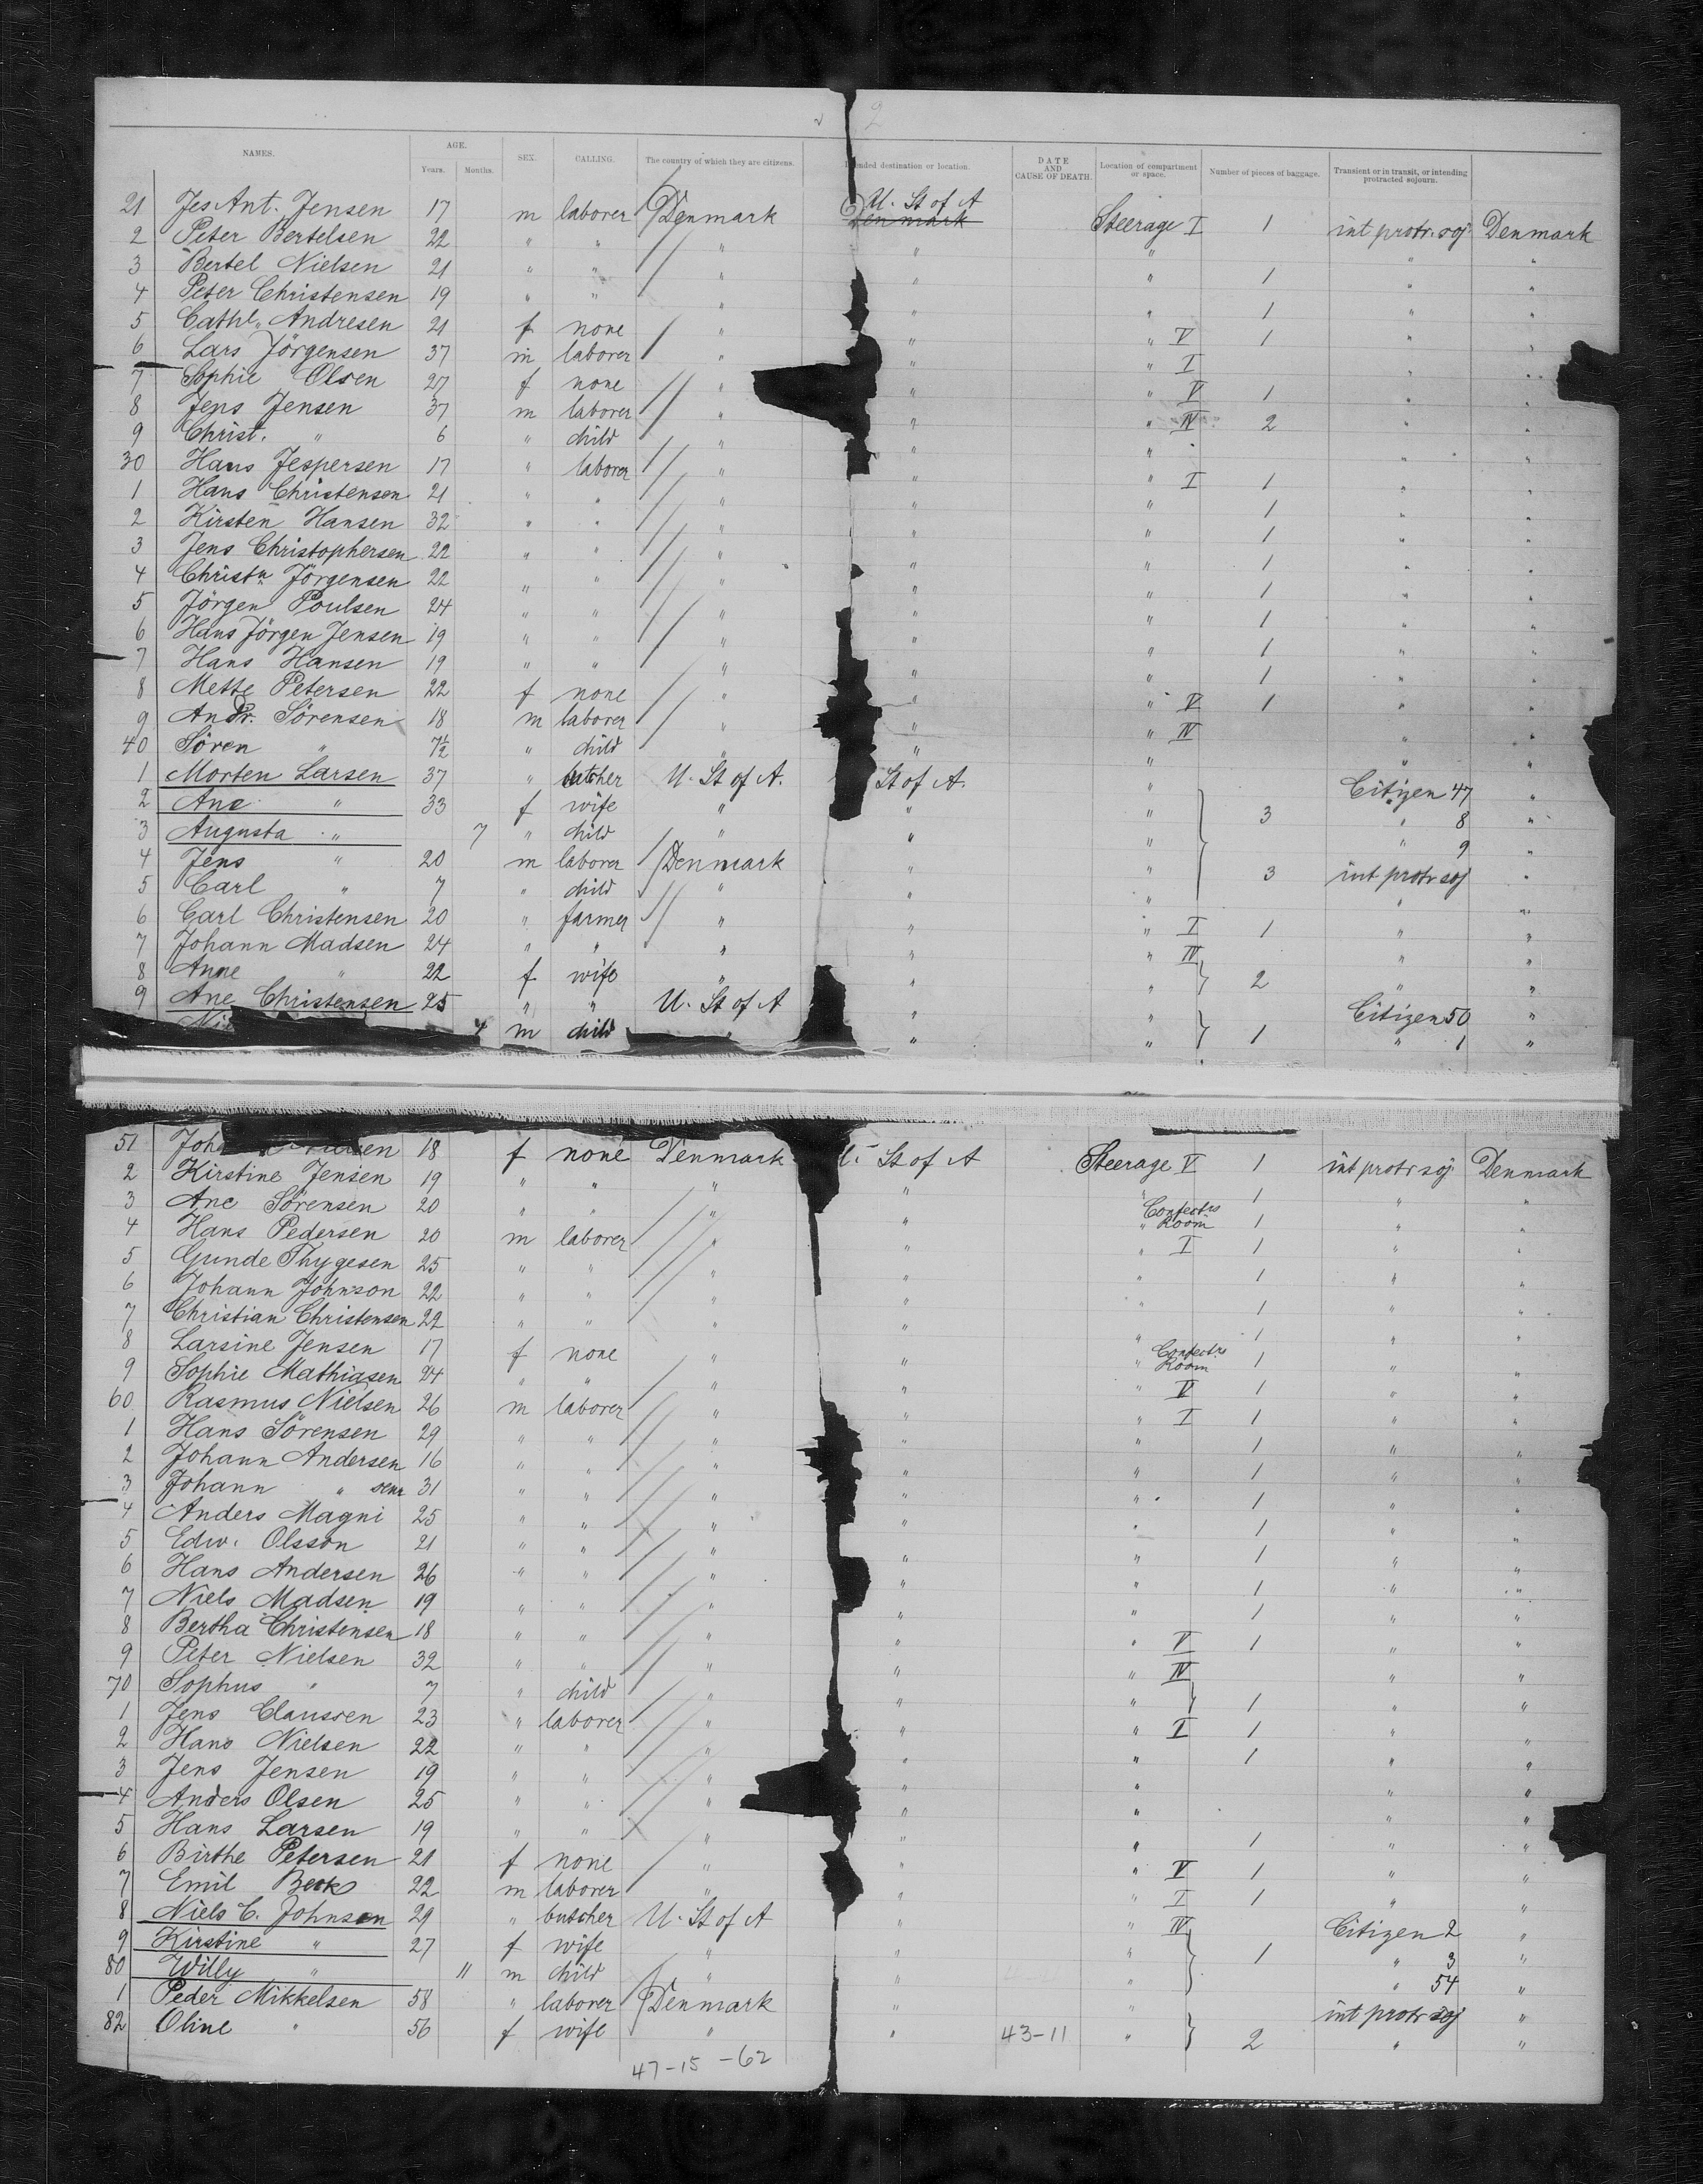 2 2
NAMES. AGE. SEX. CALLING. The country of which they are citizens. ended destination or location. DATE AND CAUSE OF DEATH. Location of compartment or space. Number of pieces of baggage. Transient or in transit, or intending protracted sojourn.
Years. Months.
U. St of A
21 Jes Ant. Jensen 17 m laborer Denmark Denmark Steerage I 1 int protr. soj Denmark
2 Peter Bertelsen 22 " " " " " " "
3 Bertel Nielsen 21 " " " " " 1 " "
4 Peter Christensen 19 " " " " 1 " "
5 Cathe. Andresen 21 f none " " " V 1 " "
6 Lars Jörgensen 37 m laborer " " " I " "
7 Sophie Olsen 27 f none " " " V 1 " "
8 Jens Jensen 37 m laborer " " " IV 2 " "
9 Christ. " 6 " child " " " " "
30 Hans Jespersen 17 " laborer " " " I 1 " "
1 Hans Christensen 21 " " " " " 1 " "
2 Kirsten Hansen 32 " " " " " 1 " "
3 Jens Christophersen 22 " " " " " 1 " "
4 Christn Jörgensen 22 " " " " " 1 " "
5 Jörgen Poulsen 24 " " " " " 1 " "
6 Hans Jörgen Jensen 19 " " " " " 1 " "
7 Hans Hansen 19 " " " " " 1 " "
8 Mette Petersen 22 f none " " " V 1 " "
9 Andr. Sörensen 18 m laborer " " " IV " "
40 Sören " 7½ " child " " " " "
1 Morten Larsen 37 " butcher U. St of A. St of A. " Citizen 47 "
2 Ane " 33 f wife " " " 3 " 8 "
3 Augusta " 7 " child " " " " 9 "
4 Jens " 20 m laborer Denmark " " 3 int protr soj "
5 Carl " 7 " child " " " " "
6 Carl Christensen 20 " farmer " " " I 1 " "
7 Johann Madsen 24 " " " " " IV " "
8 Anne " 22 f wife " " " 2 " "
9 Ane Christensen 25 " " U. St of A " " Citizen 50 "
4 m child " " " 1 " 1 "
51 18 f none Denmark St of A Steerage V 1 int protr soj Denmark
2 Kirstine Jensen 19 " " " " " 1 " "
3 Ane Sörensen 20 " " " " " Room 1 " "
4 Hans Pedersen 20 m laborer " " " I 1 " "
5 Gunde Thygesen 25 " " " " " 1 " "
6 Johann Johnson 22 " " " " " 1 " "
7 Christian Christensen 22 " " " " " 1 " "
8 Larsine Jensen 17 f none " " " Room 1 " "
9 Sophie Mathiasen 24 " " " " " V 1 " "
60 Rasmus Nielsen 26 m laborer " " " I 1 " "
1 Hans Sörensen 29 " " " " " 1 " "
2 Johann Andersen 16 " " " " " 1 " "
3 Johann " senr 31 " " " " " 1 " "
4 Anders Magni 25 " " " " " 1 " "
5 Edw. Olsson 21 " " " " " 1 " "
6 Hans Andersen 26 " " " " " 1 " "
7 Niels Madsen 19 " " " " " 1 " "
8 Bertha Christensen 18 " " " " " V 1 " "
9 Peter Nielsen 32 " " " " " IV " "
70 Sophus " 7 " child " " " 1 " "
1 Jens Claussen 23 " laborer " " " I 1 " "
2 Hans Nielsen 22 " " " " " 1 " "
3 Jens Jensen 19 " " " " " " "
4 Anders Olsen 25 " " " " " " "
5 Hans Larsen 19 " " " " " 1 " "
6 Birthe Petersen 21 f none " " " V 1 " "
7 Emil Beck 22 m laborer " " " I 1 " "
8 Niels C. Johnson 29 " butcher U. St of A " " IV Citizen 2 "
9 Kirstine " 27 f wife " " " 1 " 3 "
80 Willy " 11 m child " " " " 54 "
1 Peder Mikkelsen 58 " laborer Denmark " " int protr soj "
82 Oline " 56 f wife " " 43-11 " 2 " "
47-15-62